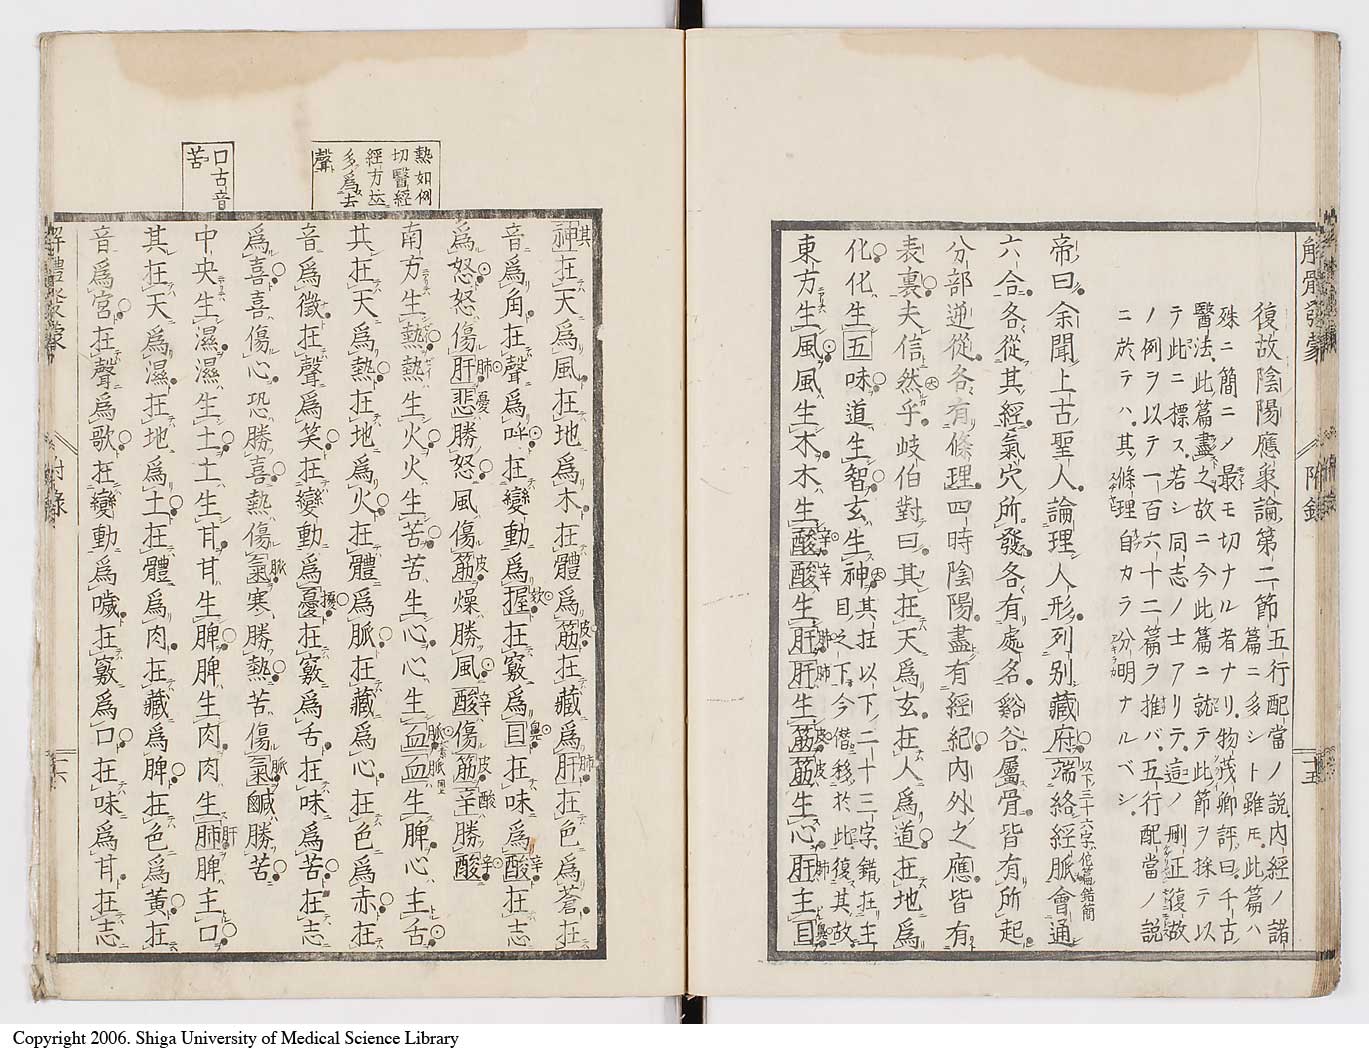 解體發蒙
附錄
十五
復故陰陽應象論第二節五行配當ノ說內經ノ諸
篇ニ多シト雖モ此篇ハ
殊ニ簡ニノ最モ切ナル者ナリ物茂卿評曰千古
醫法此篇盡之故ニ今此篇ニ就テ此節ヲ採テ以
テ此ニ標ス若シ同志ノ士アリテ這ノ刪正復故
ノ例ヲ以テ一百六十二篇ヲ推バ五行配當ノ說
ニ於テハ其條理自カラ分明ナルベシ
帝曰余聞上古聖人論理人形列別藏府端絡經脈會通
以下三十六字他篇錯簡
六合各從其經氣穴所發各有處名谿谷屬骨皆有所起
分部逆從各有條理四時陰陽盡有經紀內外之應皆有
表裏夫信然乎岐伯對曰其在天爲玄在人爲道在地爲
化化生五味道生智玄生神其在以下二十三字錯在主
目之下今借移於此復其故
東方生風風生木木生酸酸生肝肝生筋筋生心肝主目
辛 辛 肺 肺 皮 皮 肺 鼻
其
神在天爲風在地爲木在體爲筋在藏爲肝在色爲蒼在
皮 肺
音爲角在聲爲呼在變動爲握在竅爲目在味爲酸在志
欬 鼻 辛
爲怒怒傷肝悲勝怒風傷筋燥勝風酸傷筋辛勝酸
肺 憂 皮 辛 皮 酸 辛
南方生熱熱生火火生苦苦生心心生血血生脾心主舌
脈 脈
其在天爲熱在地爲火在體爲脈在藏爲心在色爲赤在
音爲徵在聲爲笑在變動爲憂在竅爲舌在味爲苦在志
擾
爲喜喜傷心恐勝喜熱傷氣寒勝熱苦傷氣鹹勝苦
脈 脈
中央生濕濕生土土生甘甘生脾脾生肉肉生肺脾主口
肝
其在天爲濕在地爲土在體爲肉在藏爲脾在色爲黃在
音爲宮在聲爲歌在變動爲噦在竅爲口在味爲甘在志
熱如例
切醫經
經方迄
多爲去
聲
口古音
苦
解體發蒙
附錄
十六
Copyright 2006. Shiga University of Medical Science Library